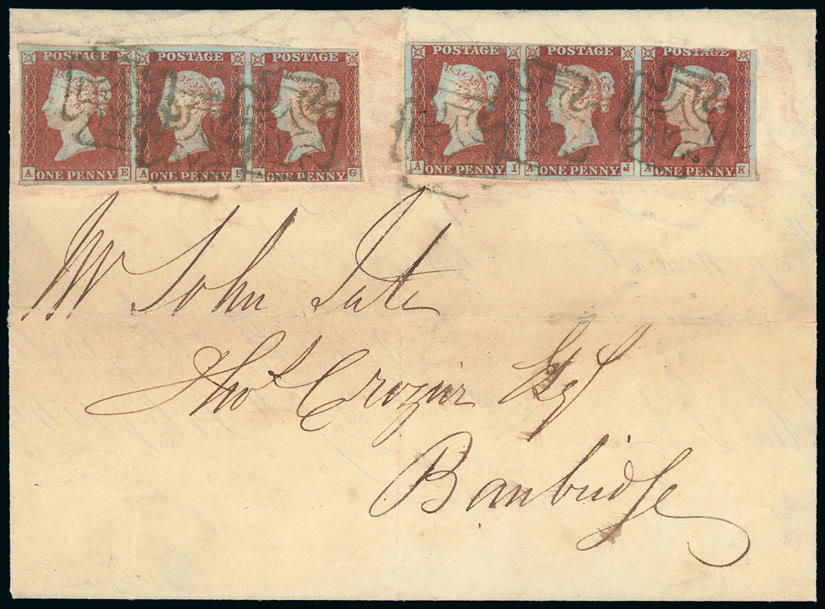 POSTAGE POSTAGE POSTAGE POSTAGE POSTAGE POSTAGE
A E A F A G A I A J A K
ONE PENNY ONE PENNY ONE PENNY ONE PENNY ONE PENNY ONE PENNY
Mr John Tate
Thos Crozier Esq
Banbridge